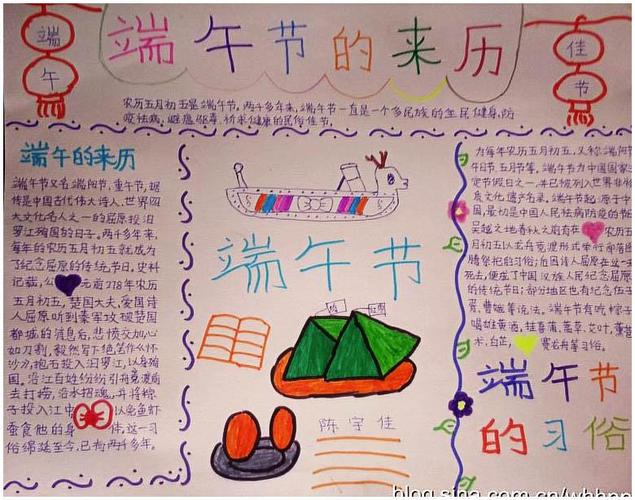 端午节的来历
端
午
佳
节
农历五月初五是端午节,两千多年来,端午节一直是一个多民族的全民健身,防
疫祛病,避瘟驱毒,祈求健康的民俗佳节。
端午的来历
端午节又名端阳节,重午节,据
传是中国古代伟大诗人,世界四
大文化名人之一的屈原投汨
罗江殉国的日子,两千多年来,
每年的农历五月初五就成为
了纪念屈原的传统节日,史料
记载,公 前278年农历
五月初五,楚国大夫,爱国诗
人屈原听到秦军攻破楚国
都城的消息后,悲愤交加心
如刀割,毅然写下绝笔作《怀
沙》,抱石投入汨罗江,以身殉
国,沿江百姓纷纷引舟竞渡前
去打捞,沿水招魂,并将粽
子投入江中 以免鱼虾
蚕食他的身 体,这一习
俗绵延至今,已有两千多年。
端午节
陈宇佳
为每年农历五月初五,又称端阳节
午日节,五月节等,端午节为中国国家
定节假日之一,并已被列入世界非物
质文化遗产名录,端午节起源于中
国,最初是中国人民祛病防疫的节
吴越之地春秋之前有在 农历五
月初五以龙舟竞渡形式举行部落图
腾祭祀的习俗;后因诗人屈原在这一
死去,便成了中国汉族人民纪念屈原
的传统节日;部分地区也有纪念伍子
胥,曹娥等说法,端午节有吃粽子
喝雄黄酒,挂菖蒲,蒿草,艾叶,薰苍
术,白芷, 赛龙舟等习俗。
端午节
的习俗
blog.sina.com.cn/whhps